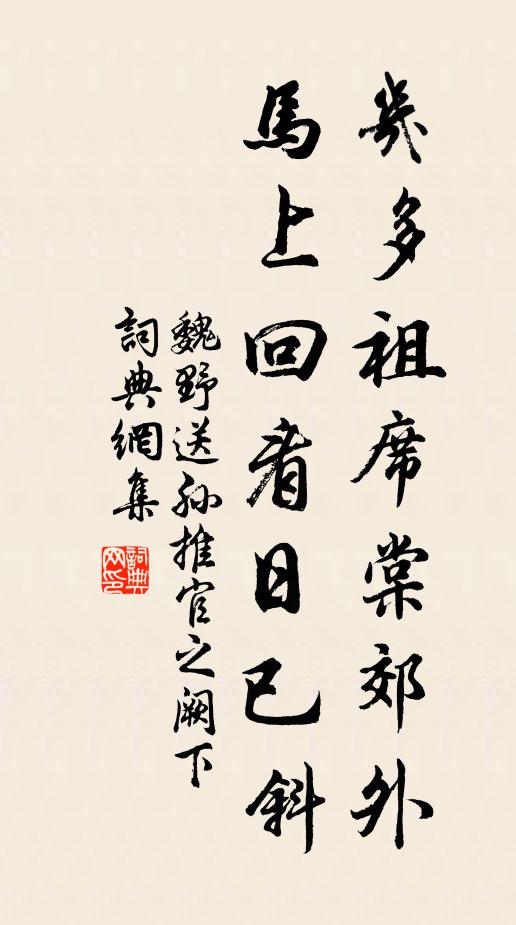 幾多祖席棠郊外
馬上回看日已斜
魏野送孫推官之闕下
詞典網集
詞典網印